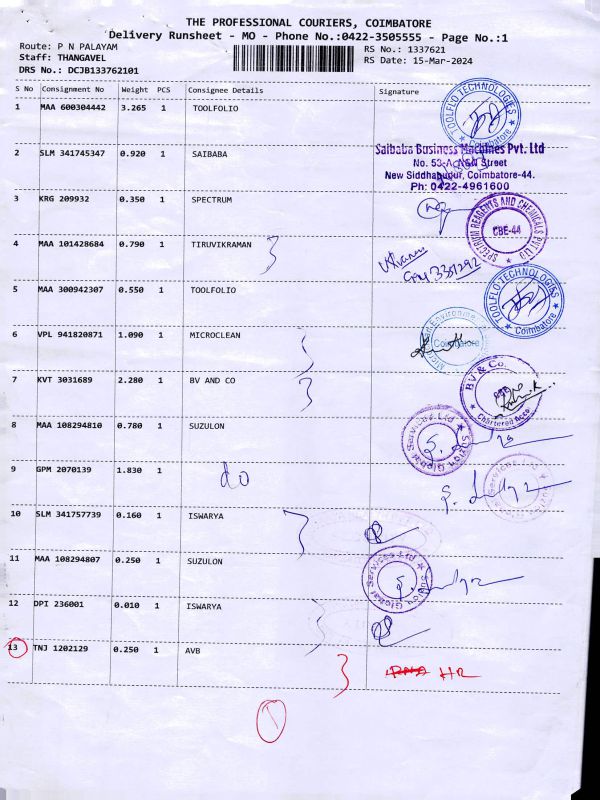 THE PROFESSIONAL COURIERS, COIMBATORE
Delivery Runsheet - MO - Phone No.:0422-3505555 - Page No.:1
Route: P N PALAYAM
RS No.: 1337621
Staff: THANGAVEL
RS Date: 15-Mar-2024
DRS No.: DCJB133762101
S No Consignment No Weight PCS Consignee Details Signature
1 MAA 600304442 3.265 1 TOOLFOLIO
TOOLFLO TECHNOLOGIES Coimbatore
2 SLM 341745347 0.920 1 SAIBABA
Saibaba Business Machines Pvt. Ltd
No. 53-A, NGN Street
New Siddhapudur, Coimbatore-44.
Ph: 0422-4961600
3 KRG 209932 0.350 1 SPECTRUM
SPECTRUM REAGENTS AND CHEMICALS PVT LTD CBE-44
4 MAA 101428684 0.790 1 TIRUVIKRAMAN
5 MAA 300942307 0.550 1 TOOLFOLIO
TOOLFLO TECHNOLOGIES Coimbatore
6 VPL 941820871 1.090 1 MICROCLEAN
Coimbatore
7 KVT 3031689 2.280 1 BV AND CO
BV & Co. Chartered Acco
8 MAA 108294810 0.780 1 SUZULON
Global Services Ltd
9 GPM 2070139 1.830 1 do
10 SLM 341757739 0.160 1 ISWARYA
11 MAA 108294807 0.250 1 SUZULON
Global Services Ltd
12 DPI 236001 0.010 1 ISWARYA
13 TNJ 1202129 0.250 1 AVB HR
1